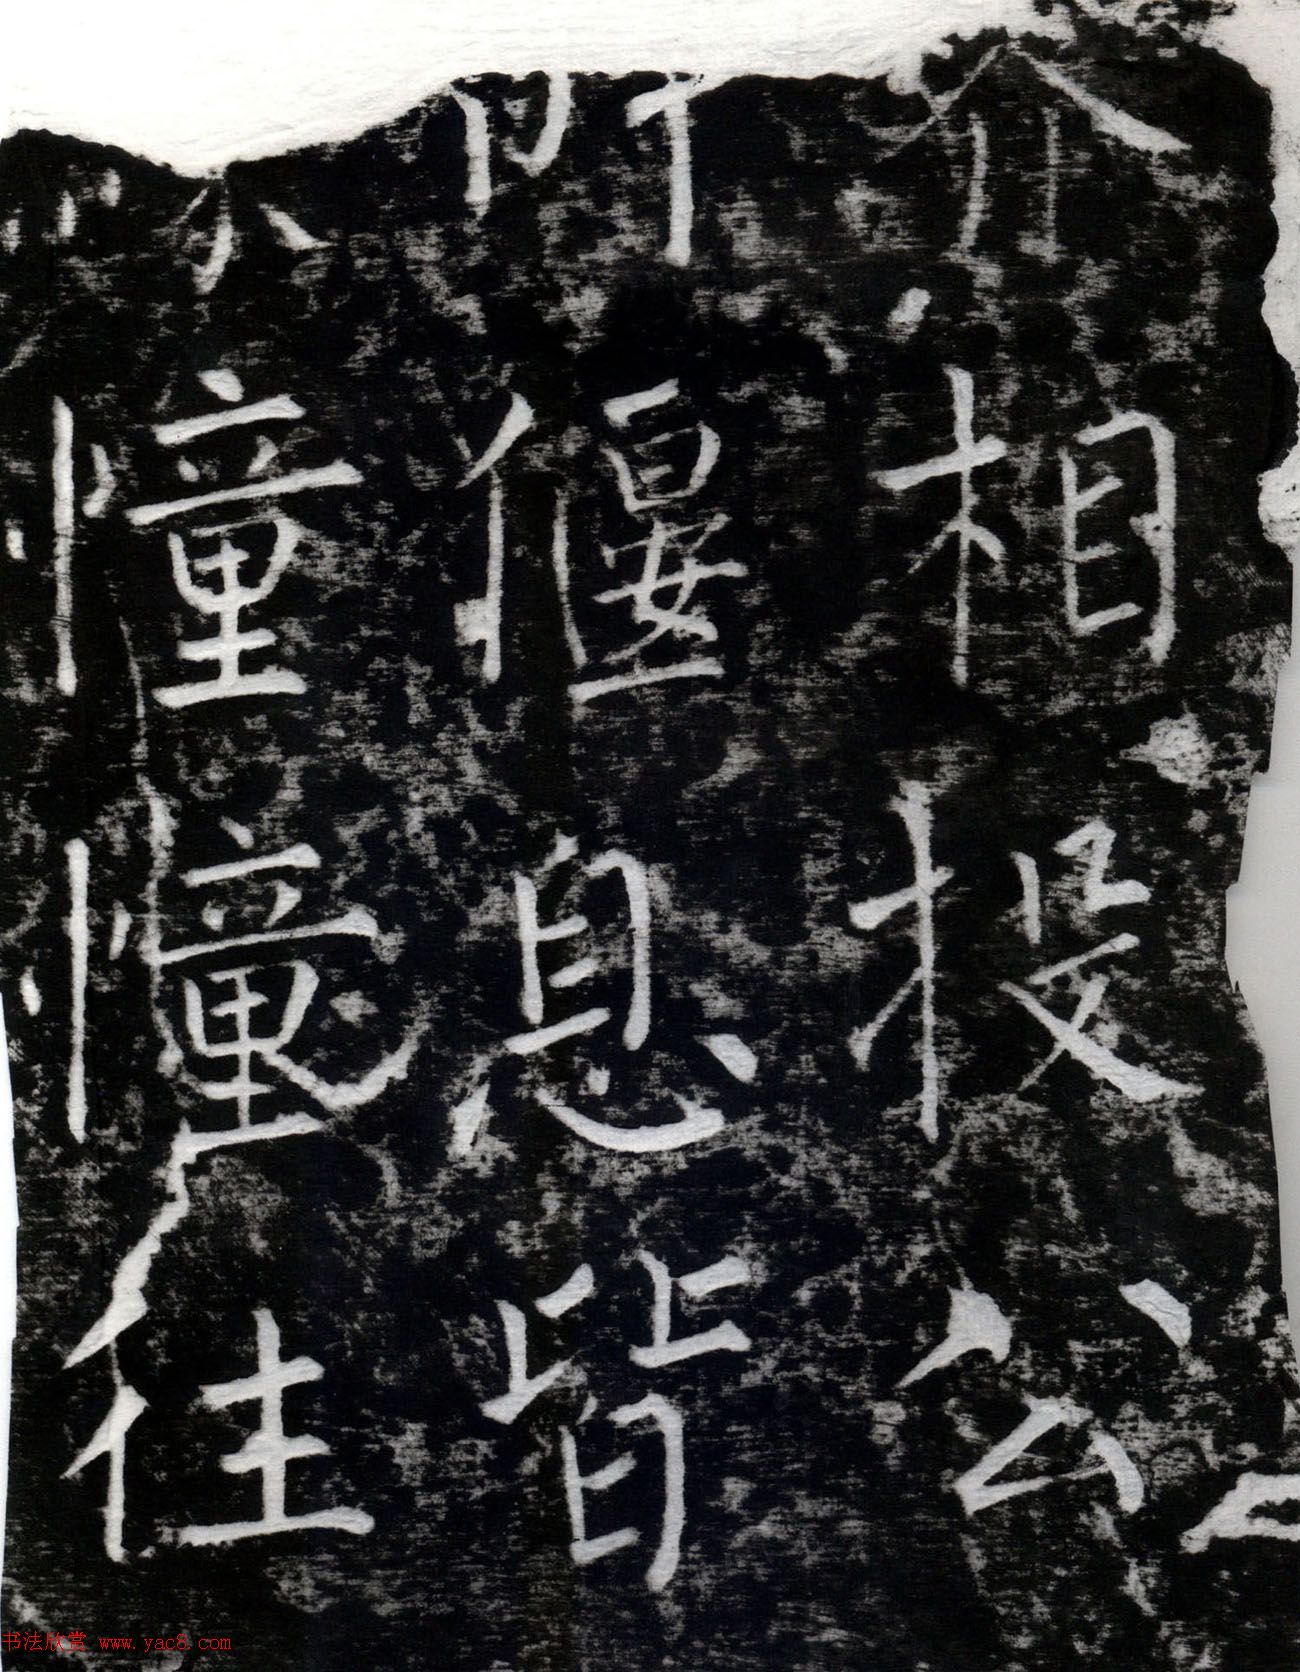 介相投公
所偃息皆
憧憧往
书法欣赏 www.yac8.com